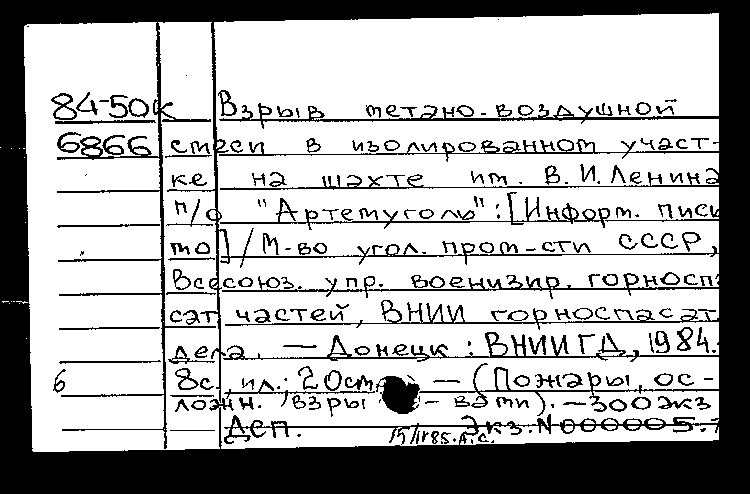 84-50к Взрыв метано-воздушной
6866 смеси в изолированном участ-
ке на шахте им. В.И.Ленина
п/о "Артемуголь":[Информ. пись
мо]/М-во угол. пром-сти СССР,
Всесоюз. упр. военизир. горносп
сат частей, ВНИИ горноспасат
дела. — Донецк : ВНИИГД, 1984.
6 8с., ил.; 20см — (Пожары, ос-
ложн. взры вами). — 300экз
ДСП. Экз.N000005.